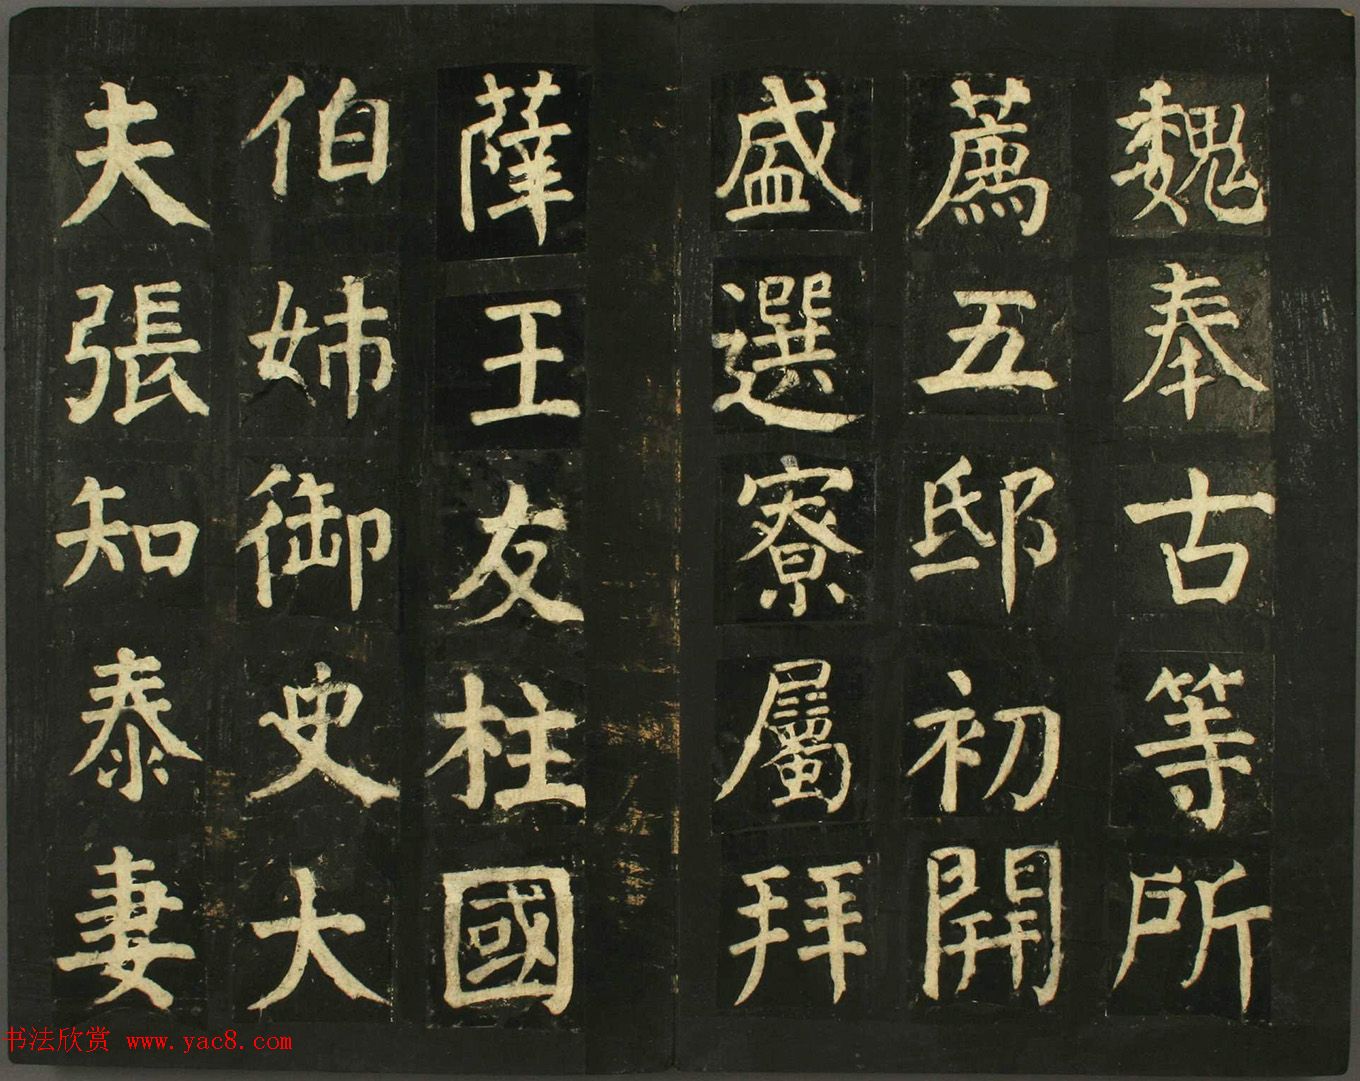 魏奉古等所
薦五邸初開
盛選寮屬拜
薛王友柱國
伯姊御史大
夫張知泰妻
书法欣赏 www.yac8.com